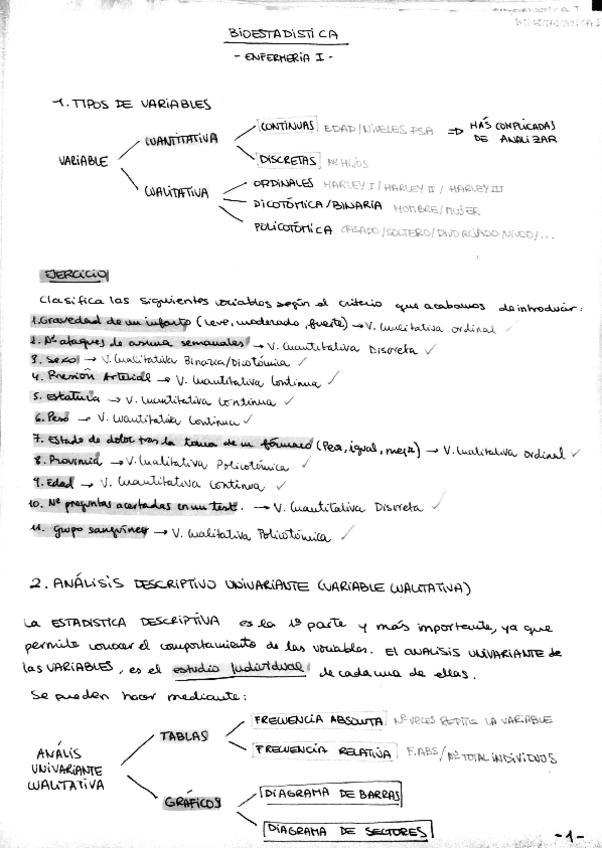 BIOESTADISTICA
- ENFERMERIA I -
1. TIPOS DE VARIABLES
VARIABLE
CUANTITATIVA
CONTINUAS EDAD/NIVELES PSA => MÁS COMPLICADAS DE ANALIZAR
DISCRETAS Nº HIJOS
CUALITATIVA
ORDINALES HARLEY I / HARLEY II / HARLEY III
DICOTÓMICA/BINARIA HOMBRE/MUJER
POLICOTÓMICA CASADO/SOLTERO/DIVORCIADO/VIUDO/...
EJERCICIO
Clasifica las siguientes variables según el criterio que acabamos de introducir:
1. Gravedad de un infarto (leve, moderado, fuerte) → V. Cualitativa ordinal ✓
2. Nº ataques de asma semanales → V. Cuantitativa Discreta ✓
3. Sexo → V. Cualitativa Binaria/Dicotómica ✓
4. Presión Arterial → V. Cuantitativa Continua ✓
5. Estatura → V. Cuantitativa Continua ✓
6. Peso → V. Cuantitativa Continua ✓
7. Estado de dolor tras la toma de un fármaco (Peor, igual, mejor) → V. Cualitativa Ordinal ✓
8. Provincia → V. Cualitativa Policotómica ✓
9. Edad → V. Cuantitativa Continua ✓
10. Nº preguntas acertadas en un test. → V. Cuantitativa Discreta ✓
11. Grupo sanguíneo → V. Cualitativa Policotómica ✓
2. ANÁLISIS DESCRIPTIVO UNIVARIANTE (VARIABLE CUALITATIVA)
La ESTADISTICA DESCRIPTIVA es la 1ª parte y más importente, ya que
permite conocer el comportamiento de las variables. El ANALISIS UNIVARIANTE de
las VARIABLES, es el estudio Individual de cada una de ellas.
Se pueden hacer mediante:
ANÁLIS
UNIVARIANTE
CUALITATIVA
TABLAS
FRECUENCIA ABSOLUTA Nº VECES REPITE LA VARIABLE
FRECUENCIA RELATIVA F.ABS/Nº TOTAL INDIVIDUOS
GRÁFICOS
DIAGRAMA DE BARRAS
DIAGRAMA DE SECTORES
-1-